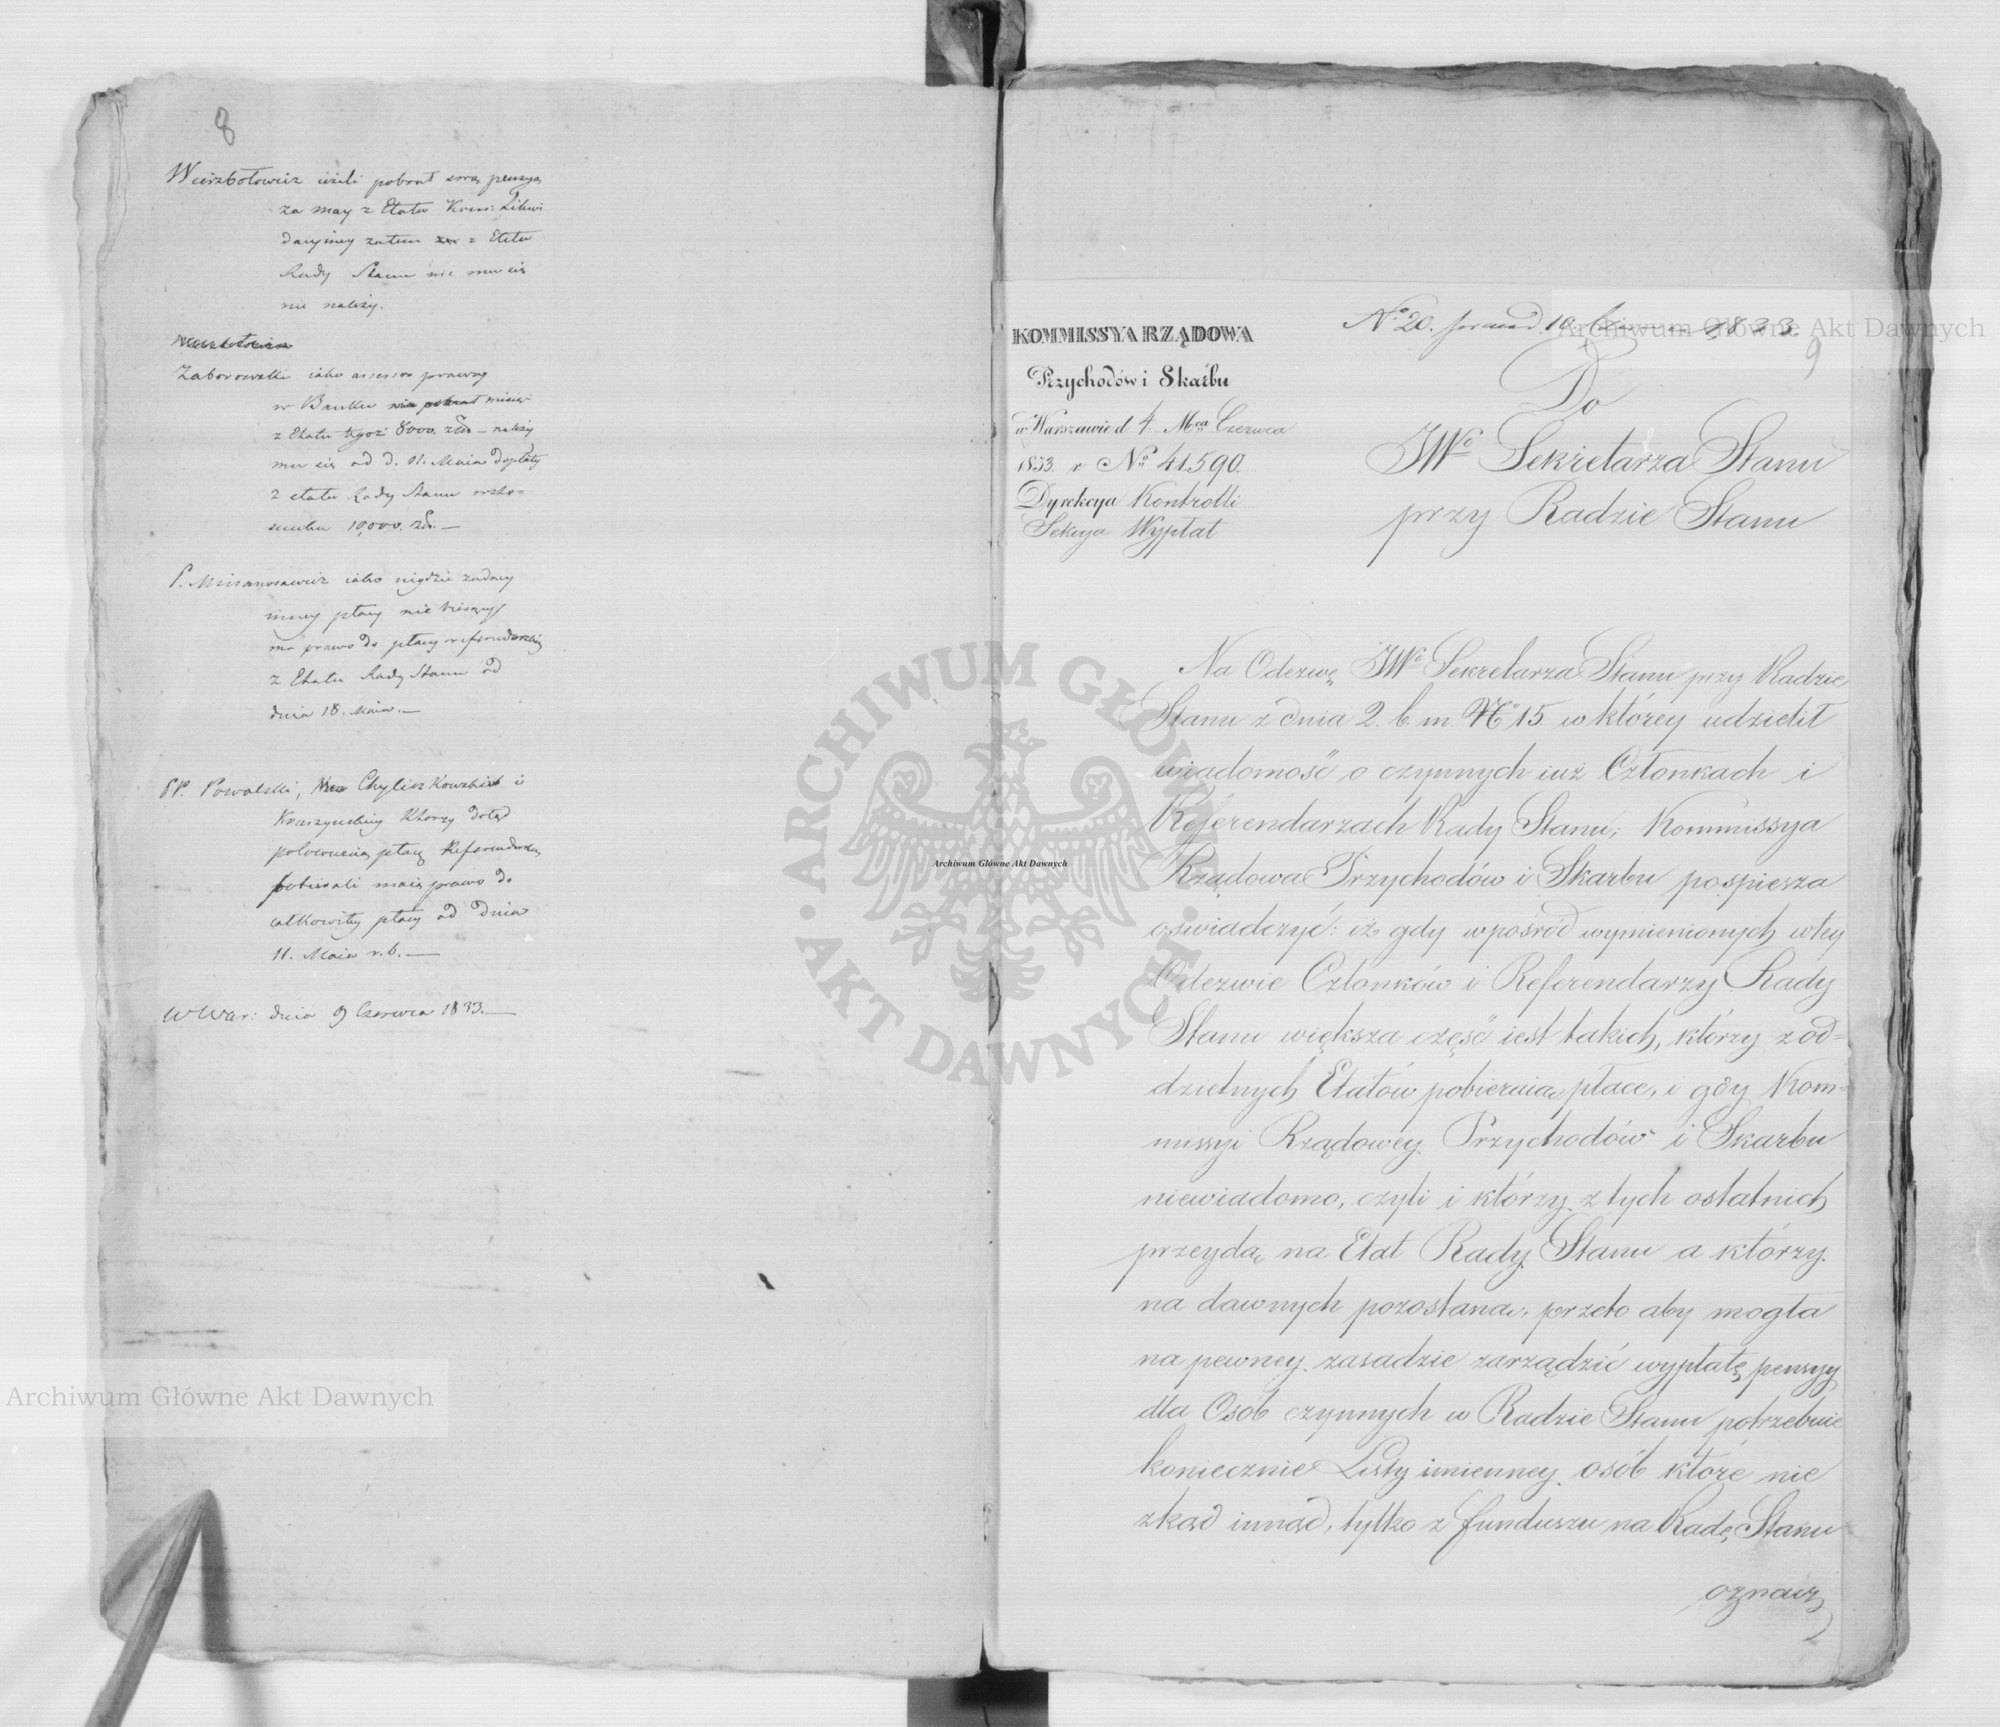 8
Wierzbołowicz ieżeli pobrał swą pensyą
za may z Etatu Kom: Likwi
dacyiney zatem z Etatu
Rady Stanu nic mu się
nie należy.
Zaborowski iako assessor prawny
w Banku
z Etatu tegoż 8000 złł — należy
mu się od d. 11. Maia dopłaty
z etatu Rady Stanu w sto-
sunku 10,000. zł. —
P. iako nigdzie żadney
inney płacy nie bierzący
ma prawo do płacy referendarskiey
z Etatu Rady Stanu od
dnia 18. Maia. —
PP. Powalski, Chyliczkowski i
Kraszyński którzy dotąd
połowiczną płacę Referendarską
pobierali maią prawo do
całkowitey płacy od dnia
11. Maia r. b. —
W War: dnia 9 Czerwca 1833. —
KOMMISSYA RZĄDOWA
Przychodów i Skarbu
w Warszawie d 4. Mca Czerwca
1833. r No 41.590.
Dyrekcya Kontrolli
Sekcya Wypłat
No 20. 10 1833.
9
Do
JWo Sekretarza Stanu
przy Radzie Stanu
Na Odezwę JWo Sekretarza Stanu przy Radzie
Stanu z dnia 2. b. m. No 15 w którey udzielił
wiadomość o czynnych iuż Członkach i
Referendarzach Rady Stanu; Kommissya
Rządowa Przychodów i Skarbu pospiesza
oświadczyć: iż gdy wpośród wymienionych w tey
Odezwie Członków i Referendarzy Rady
Stanu większa część iest takich, którzy z od-
dzielnych Etatów pobieraią płace, i gdy Kom-
missyi Rządowey Przychodów i Skarbu
niewiadomo, czyli i którzy z tych ostatnich
przeydą na Etat Rady Stanu a którzy
na dawnych pozostaną, przeto aby mogła
na pewney zasadzie zarządzić wypłatę pensyy
dla Osób czynnych w Radzie Stanu potrzebuie
koniecznie Listy imienney osób które nie
zkąd inąd, tylko z funduszu na Radę Stanu
oznacz
Archiwum Główne Akt Dawnych
ARCHIWUM GŁÓWNE · AKT DAWNYCH ·
Archiwum Główne Akt Dawnych
Archiwum Główne Akt Dawnych